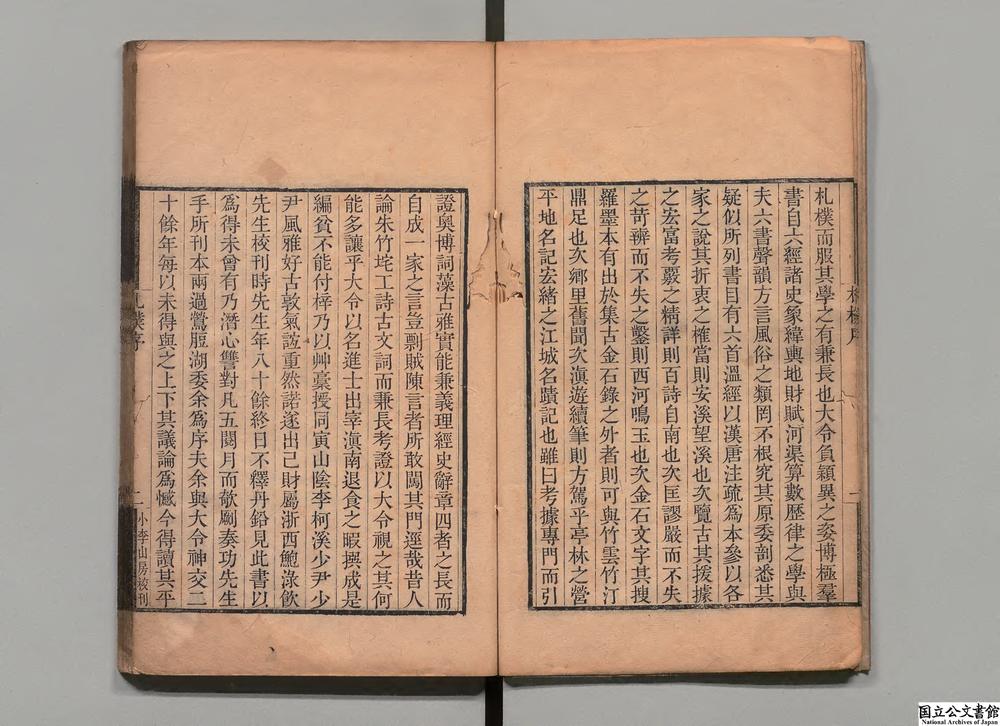 札樸而服其學之有兼長也大令負穎異之姿博極羣
書自六經諸史象緯輿地財賦河渠算數歷律之學與
夫六書聲韻方言風俗之類罔不根究其原委剖悉其
疑似所列書目有六首溫經以漢唐注疏爲本參以各
家之說其折衷之榷當則安溪望溪也次覽古其援據
之宏富考覈之精詳則百詩自南也次匡謬嚴而不失
之苛辨而不失之鑿則西河鳴玉也次金石文字其搜
羅墨本有出於集古金石錄之外者則可與竹雲竹汀
鼎足也次鄉里舊聞次滇遊續筆則方駕乎亭林之營
平地名記宏緒之江城名蹟記也雖曰考據專門而引
一
證奥博詞藻古雅實能兼義理經史辭章四者之長而
自成一家之言豈剽賊陳言者所敢闖其門逕哉昔人
論朱竹垞工詩古文詞而兼長考證以大令視之其何
能多讓乎大令以名進士出宰滇南退食之暇撰成是
編貧不能付梓乃以艸稾授同寅山陰李柯溪少尹少
尹風雅好古敦氣誼重然諾遂出己財屬浙西鮑淥飲
先生校刊時先生年八十餘終日不釋丹鉛見此書以
爲得未曾有乃潛心讐對凡五閱月而欹劂奏功先生
手所刊本兩過鶯脰湖委余爲序夫余與大令神交二
十餘年每以未得與之上下其議論爲憾今得讀其平
札樸序
二
小李山房校刊
国立公文書館
National Archives of Japan